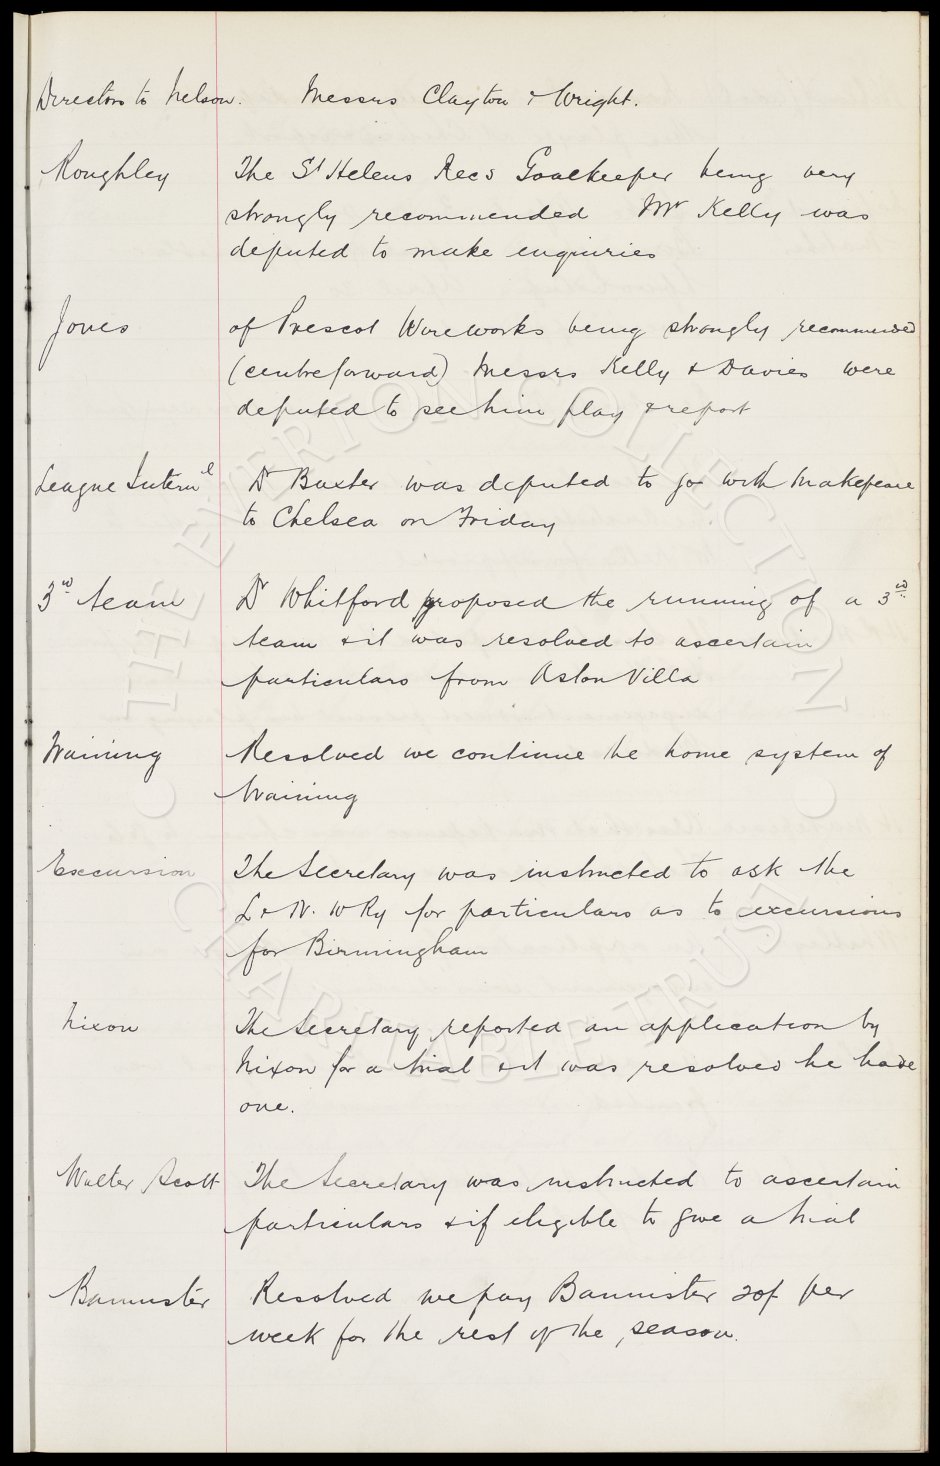 Directors to Nelson. Messrs Clayton & Wright.
Roughley The St Helens Recs Goalkeeper being very
strongly recommended Mr Kelly was
deputed to make enquiries
Jones of Prescot Wireworks being strongly recommended
(centre forward) Messrs Kelly & Davies were
deputed to see him play & report
League Internl Dr Baxter was deputed to go with Makepeace
to Chelsea on Friday
3rd team Dr Whitford proposed the running of a 3rd
team & it was resolved to ascertain
particulars from Aston Villa
Training Resolved we continue the home system of
training
Excursion The Secretary was instructed to ask the
L & N. W Ry for particulars as to excursions
for Birmingham
Nixon The Secretary reported an application by
Nixon for a trial & it was resolved he have
one.
Walter Scott The Secretary was instructed to ascertain
particulars & if eligible to give a trial
Bannister Resolved we pay Bannister 20/- per
week for the rest of the season.
THE EVERTON COLLECTION
CHARITABLE TRUST